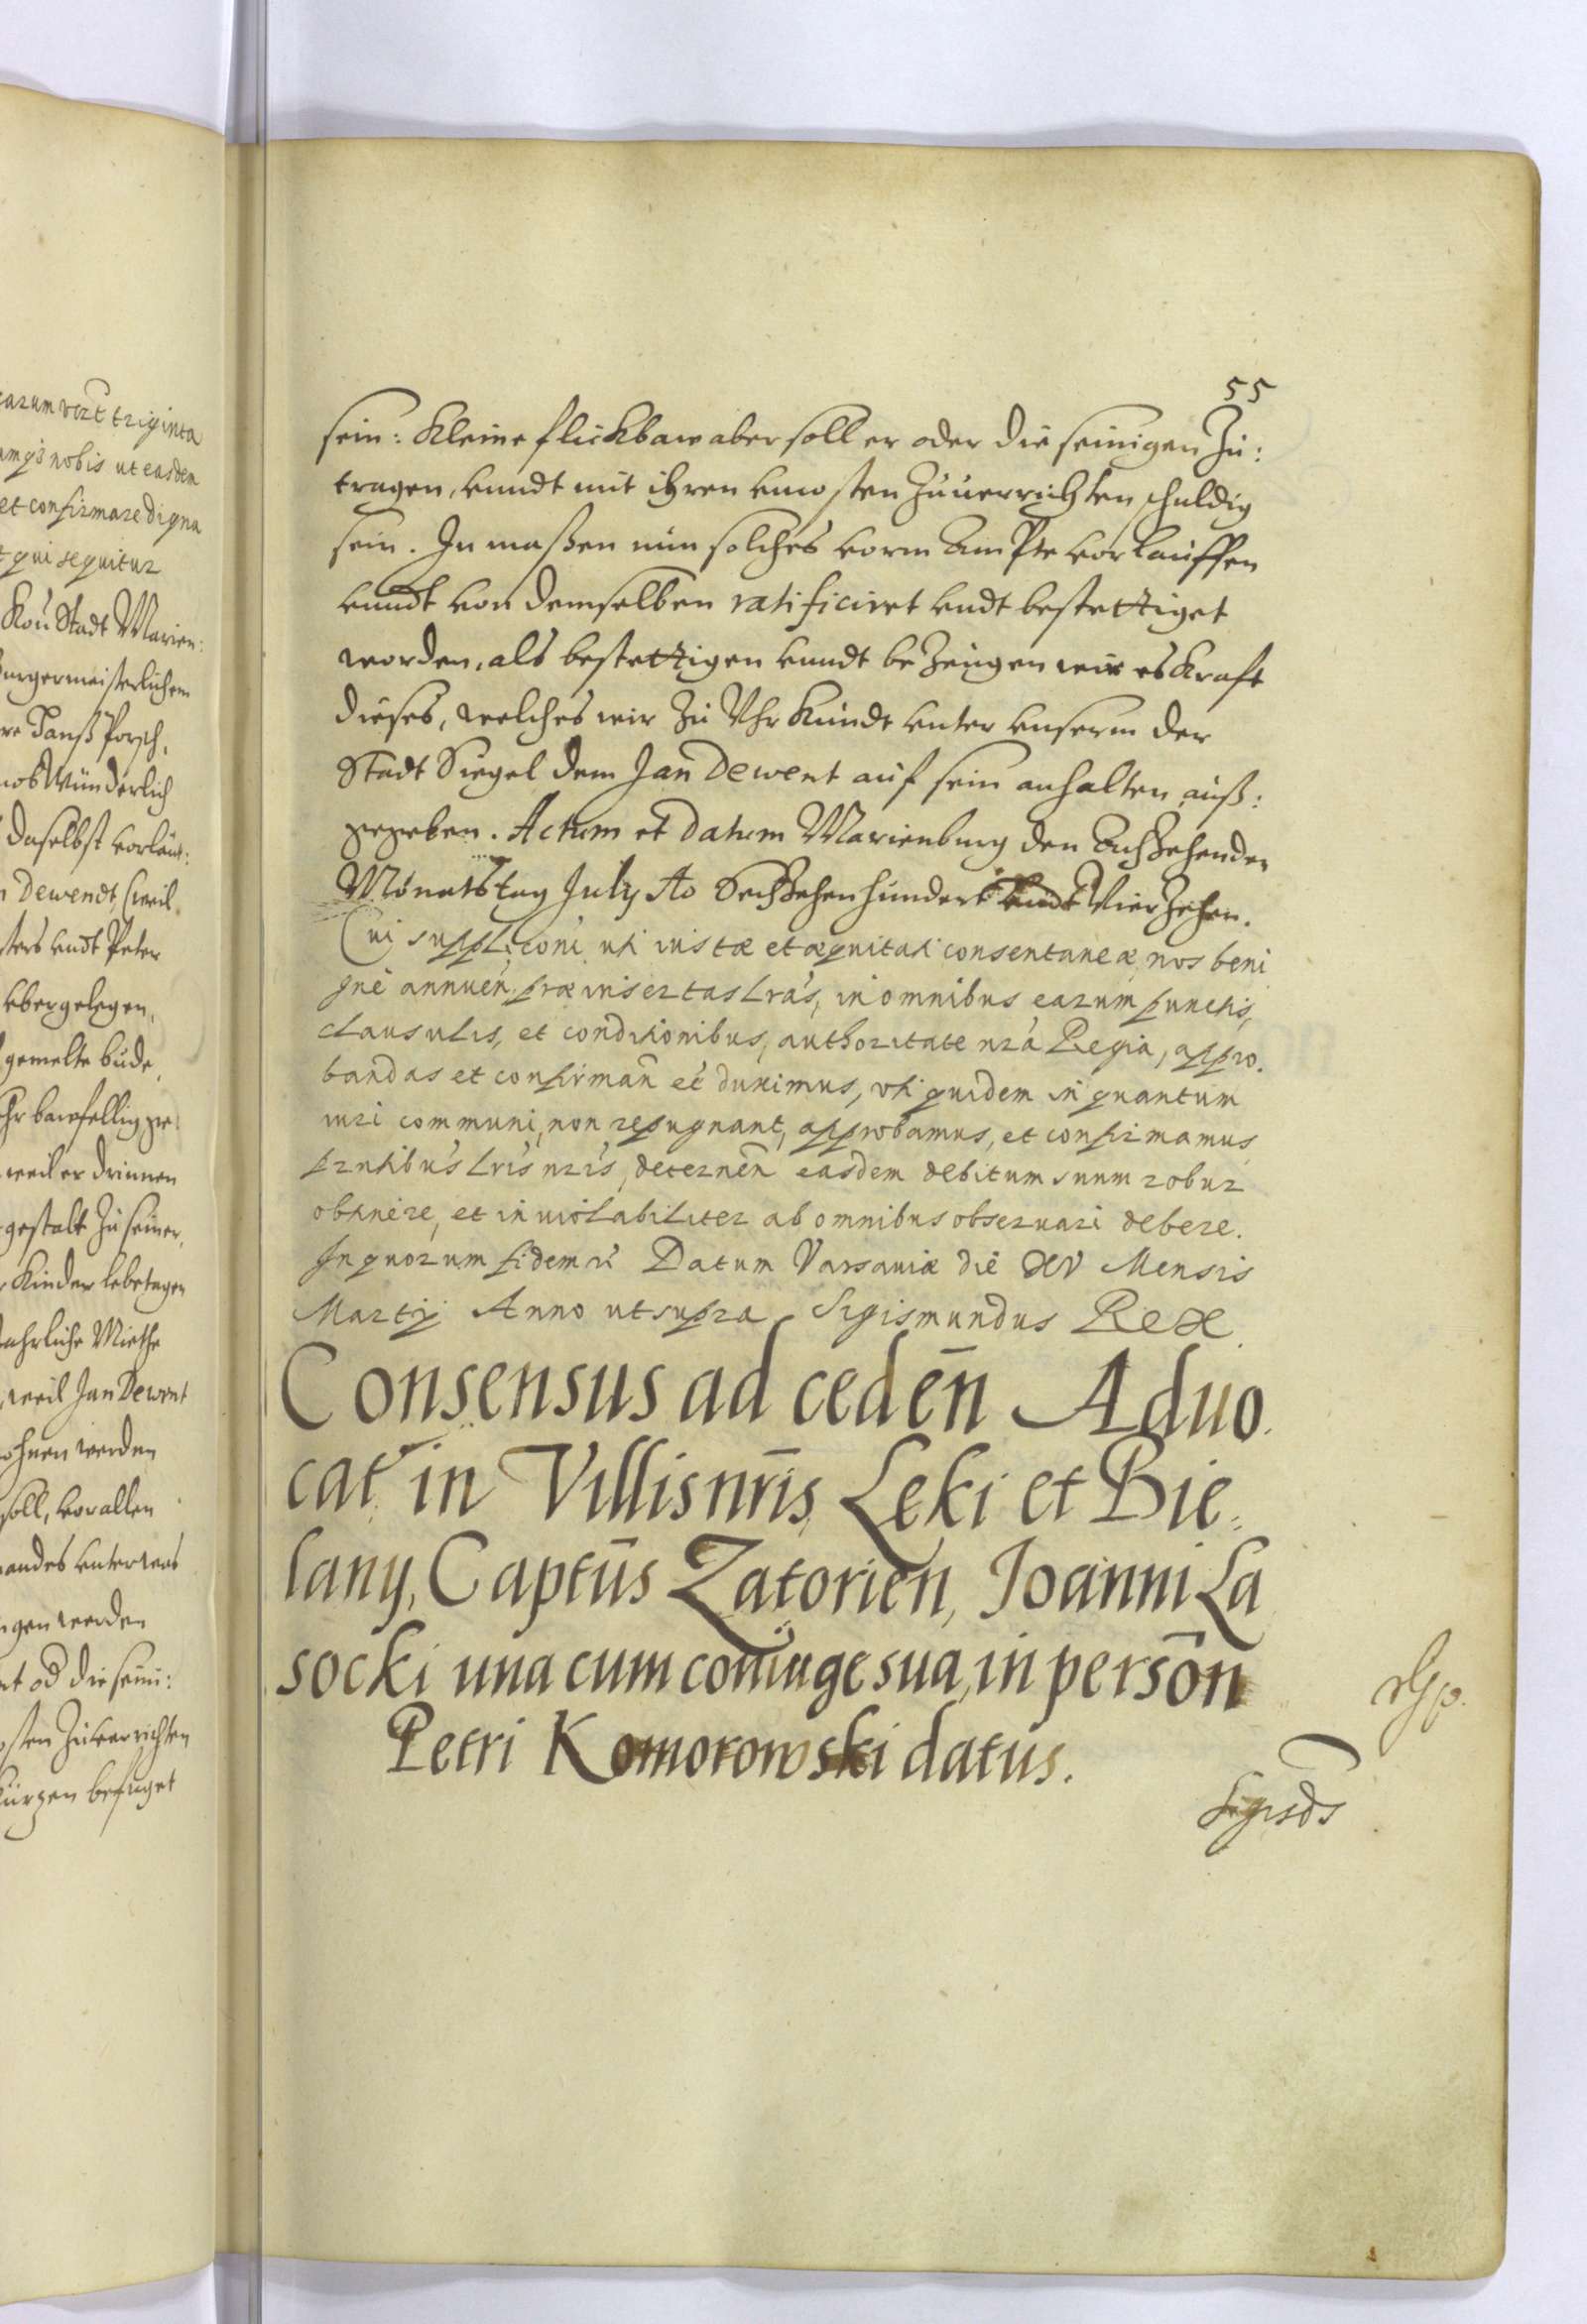 earum vert triginta
nobis ut easdem
et confirmare digna
qui sequitur
Kön Stadt Marien:
Burgermeisterlichem
Hanß Porsch,
Wünderlich
daselbst vorläut:
Dewendt, weil
endt Peter
vbergelegen,
gemelte bude,
bawfellig ge
weil er drinnen
gestalt zu seiner,
Kinder lebetagen
jahrliche Miethe
weil Jan Dewent
wohnen werden
soll, vor allen
werden
od die seini:
zuverrichten
befuget
55
sein: Kleine flickbaw aber soll er oder die seinigen Zu:
tragen, vnndt mit ihren vnkosten Zuuerrichten schuldig
sein. In maßen nun solches vorm Ampte vorlauffen
vnndt von demselben ratificiret vndt bestettiget
worden, als bestettigen vnndt beZeugen wir es Kraft
dieses, welches wir Zu VhrKundt vnter vnserm der
Stadt Siegel dem Jan Dewent auf sein anhalten auß:
gegeben. Actum et Datum Marienburg den Achtzehenden
Monatstag July Ao Sechzehenhundert vndt VierZehen.
Cui suppl:coni uti iustæ et æquitati consentaneæ nos beni
gne annuen præinsertas Lras, in omnibus earum punctis,
clausulis, et conditionibus, authoritate nra Regia, appro.
bandas et confirman ee duximus, vti quidem in quantum
iuri communi, non repugnant, approbamus, et confirmamus
prntibus Lris nris, decernen easdem debitum suum robur
obtinere, et inuiolabiliter ab omnibus obseruari debere.
In quorum fidem rc Datum Varsauiæ die XV Mensis
Martij Anno ut supra Sigismundus Rex
Consensus ad ceden Aduo.
cat in Villis nris Leki et Bie:
lany, Captus Zatorien, Joanni La
socki una cum coniuge sua, in person
Petri Komorowski datus.
Sigisds